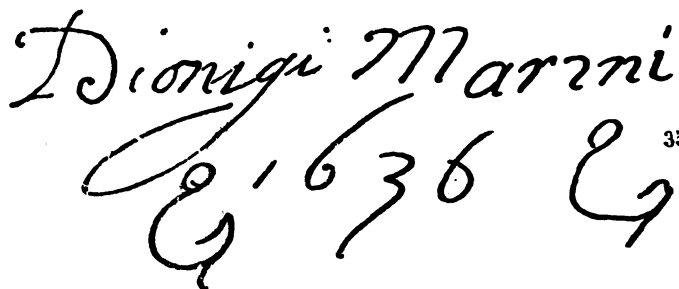 Dionigi Marini
1636